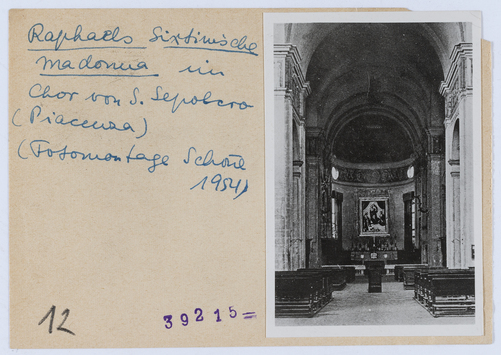 Raphaels Sixtinische
Madonna im
Chor von S. Sepolcro
(Piacenza)
(Fotomontage Schöne
1954)
12
39215=